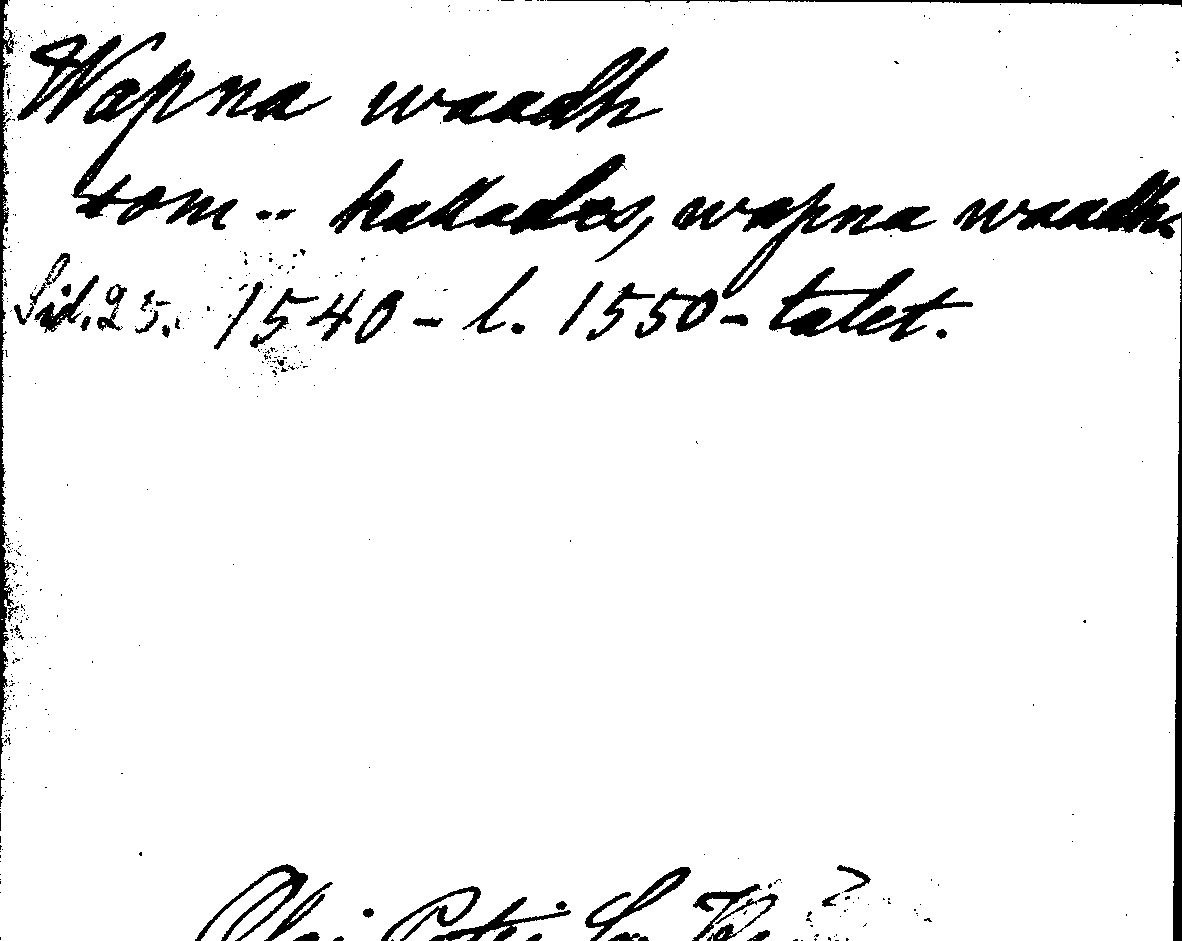 Wapna waadh
som -- kallades, wapna waadh.
Sid. 25. 1540- l. 1550-talet.
Olai Petri